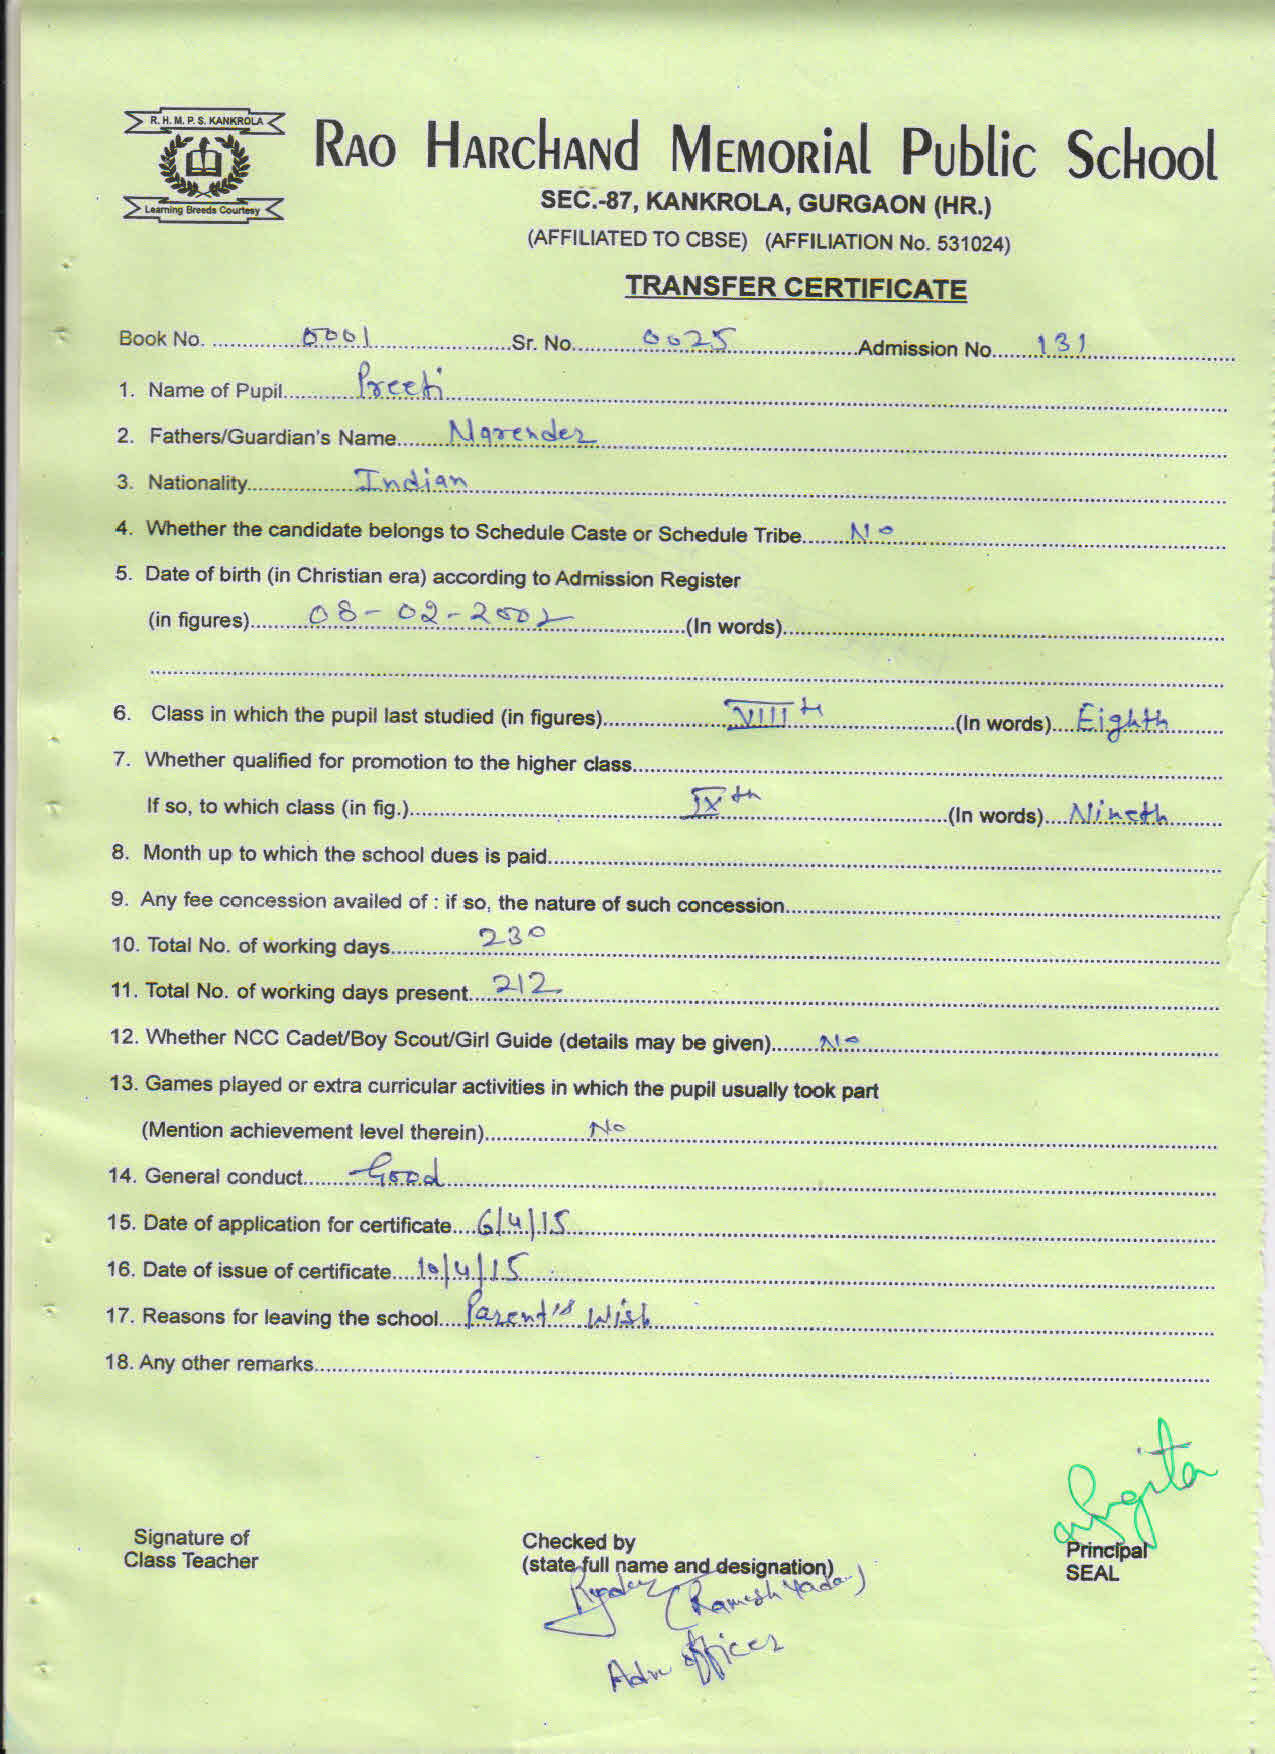 R. H. M. P. S. KANKROLA
Learning Breeds Courtesy
Rao Harchand Memorial Public School
SEC.-87, KANKROLA, GURGAON (HR.)
(AFFILIATED TO CBSE) (AFFILIATION No. 531024)
TRANSFER CERTIFICATE
Book No. 0001 Sr. No. 0025 Admission No. 131
1. Name of Pupil Preeti
2. Fathers/Guardian's Name Narender
3. Nationality Indian
4. Whether the candidate belongs to Schedule Caste or Schedule Tribe No
5. Date of birth (in Christian era) according to Admission Register
(in figures) 08-02-2002 (In words)
6. Class in which the pupil last studied (in figures) VIIIth (In words) Eighth
7. Whether qualified for promotion to the higher class
If so, to which class (in fig.) IXth (In words) Nineth
8. Month up to which the school dues is paid
9. Any fee concession availed of : if so, the nature of such concession
10. Total No. of working days 230
11. Total No. of working days present 212
12. Whether NCC Cadet/Boy Scout/Girl Guide (details may be given) No
13. Games played or extra curricular activities in which the pupil usually took part
(Mention achievement level therein) No
14. General conduct Good
15. Date of application for certificate 6/4/15
16. Date of issue of certificate 10/4/15
17. Reasons for leaving the school Parent's Wish
18. Any other remarks
Signature of
Class Teacher
Checked by
(state full name and designation)
(Ramesh Yadav)
Adm officer
Principal
SEAL